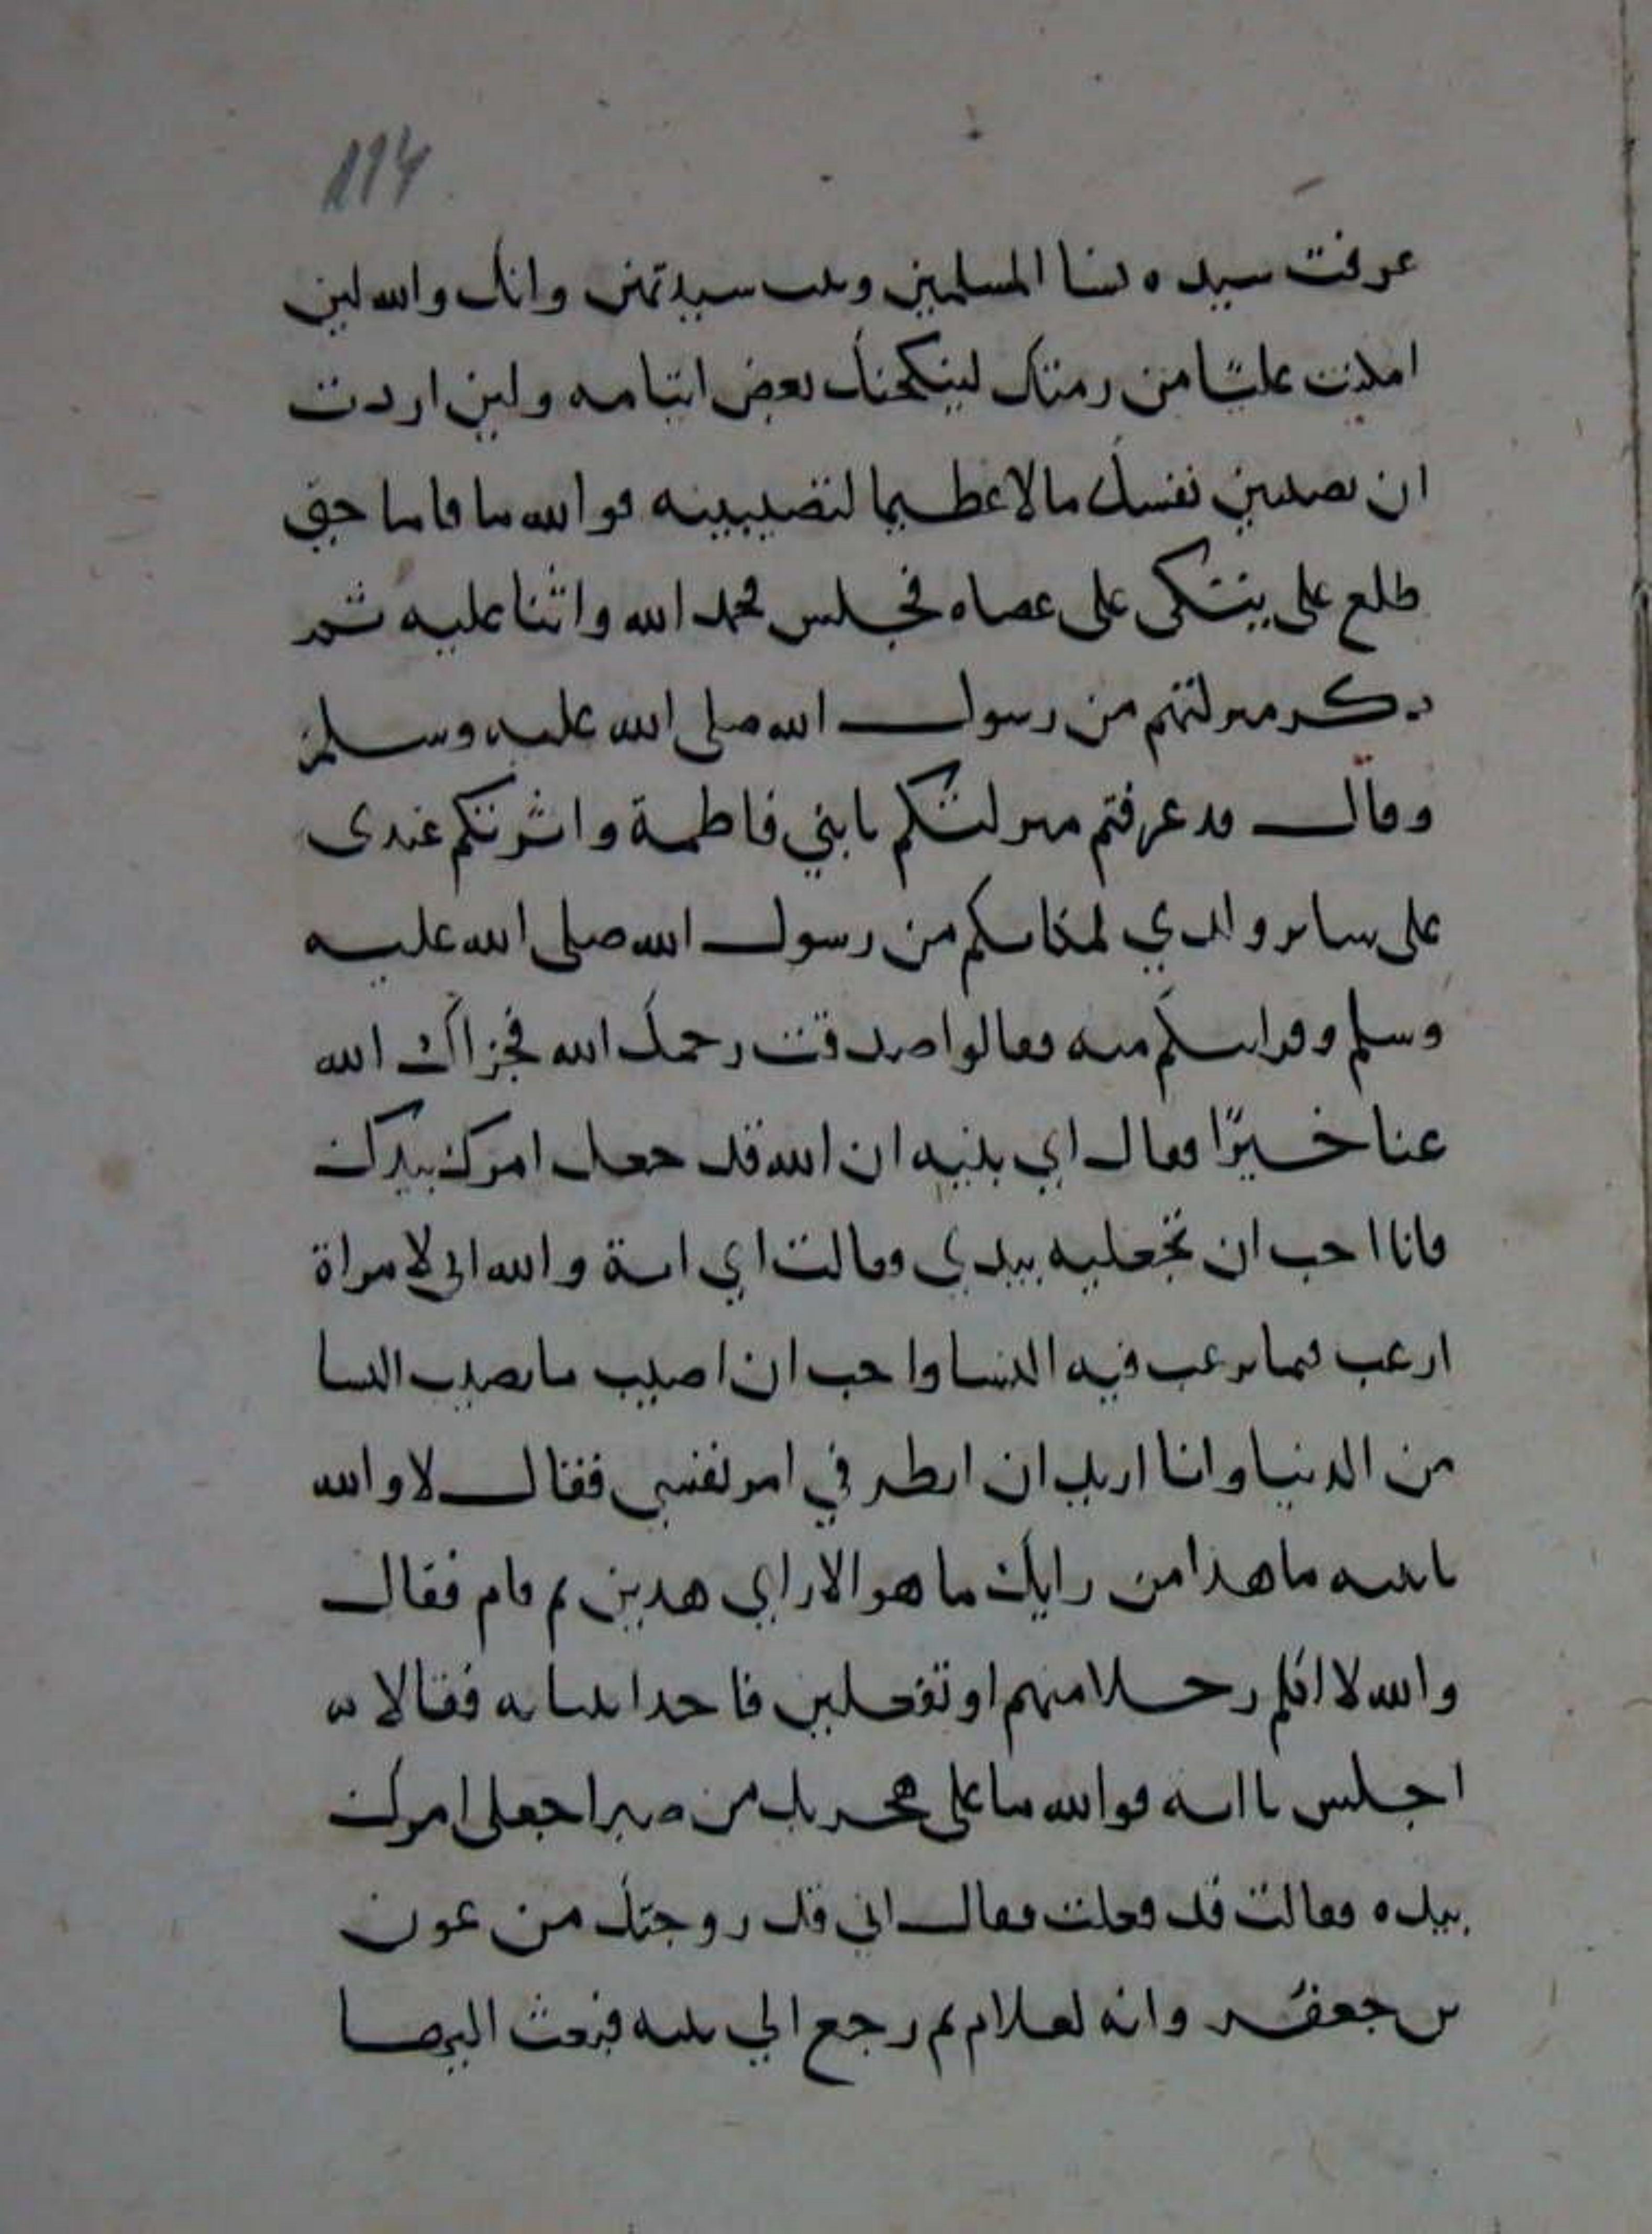 114
عرفت سيده نسا المسلمين وبنت سيدتهن وانك والله لين
امكنت عليًا من رمتك لينكحنك بعض ايتامه ولين اردت
ان تصيبين نفسك مالا عظيما لتصيبينه فوالله ما قاما حتى
طلع على يتكى على عصاه فجلس فحمد الله واثنا عليه ثم
ذكر منزلتهم من رسول الله صلى الله عليه وسلم
وقال قد عرفتم منزلتكم يا بني فاطمة واثرتكم عندى
على ساير ولدي لمكانكم من رسول الله صلى الله عليه
وسلم وقرابتكم منه فقالوا صدقت رحمك الله فجزاك الله
عنا خيرًا فقال اي بنيه ان الله قد جعل امرك بيدك
فانا احب ان تجعليه بيدي فقالت اي ابة والله اني لامراة
ارغب فيما يرغب فيه النسا واحب ان اصيب ما تصيب النسا
من الدنيا وانا اريد ان انظر في امر نفسي فقال لا والله
يا بنيه ما هذا من رايك ما هو الا راي هذين ثم قام فقال
والله لا اكلم رجلا منهم او تفعلين فاخذا بثيابه فقالا له
اجلس يا ابه فوالله ما على هجرتك من صبر اجعلى امرك
بيده فقالت قد فعلت فقال اني قد زوجتك من عون
بن جعفر وانه لغلام ثم رجع الي بيته فبعث اليها